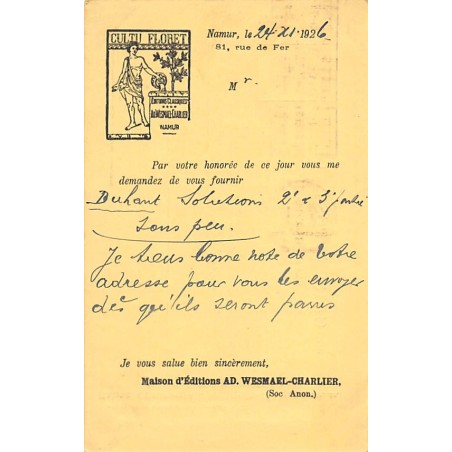 CULTU FLORET
ÉDITIONS CLASSIQUES
AD. WESMAEL-CHARLIER
NAMUR
Namur, le 24-XI-1926
81, rue de Fer
Mr.
Par votre honorée de ce jour vous me
demandez de vous fournir
Duhant Solutions 2e & 3e partie
sous peu.
Je tiens bonne note de votre
adresse pour vous les envoyer
dès qu'ils seront parus
Je vous salue bien sincèrement,
Maison d'Éditions AD. WESMAEL-CHARLIER,
(Soc Anon.)